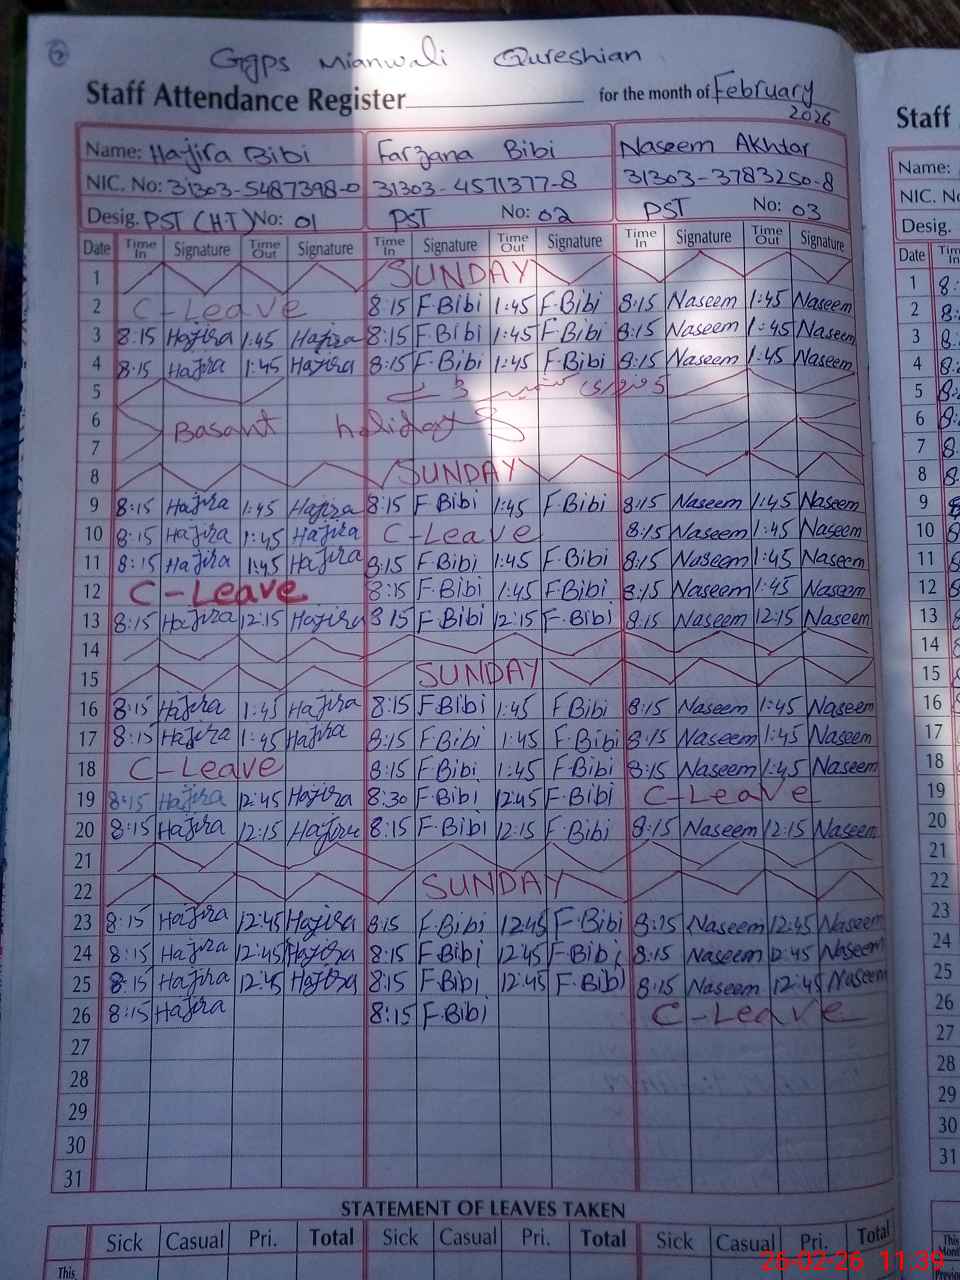 GGPS Mianwali Qureshian
Staff Attendance Register for the month of February
2026
Name: Hajira Bibi Farzana Bibi Naseem Akhtar
NIC. No: 31303-5487398-0 31303-4571377-8 31303-3783250-8
Desig. PST (HT) No: 01 PST No: 02 PST No: 03
Date Time In Signature Time Out Signature Time In Signature Time Out Signature Time In Signature Time Out Signature
1 SUNDAY
2 C-Leave 8:15 F.Bibi 1:45 F.Bibi 8:15 Naseem 1:45 Naseem
3 8:15 Hajira 1:45 Hajira 8:15 F.Bibi 1:45 F.Bibi 8:15 Naseem 1:45 Naseem
4 8:15 Hajira 1:45 Hajira 8:15 F.Bibi 1:45 F.Bibi 8:15 Naseem 1:45 Naseem
5
6 Basant holidays
7
8 SUNDAY
9 8:15 Hajira 1:45 Hajira 8:15 F.Bibi 1:45 F.Bibi 8:15 Naseem 1:45 Naseem
10 8:15 Hajira 1:45 Hajira C-Leave 8:15 Naseem 1:45 Naseem
11 8:15 Hajira 1:45 Hajira 8:15 F.Bibi 1:45 F.Bibi 8:15 Naseem 1:45 Naseem
12 C-Leave 8:15 F.Bibi 1:45 F.Bibi 8:15 Naseem 1:45 Naseem
13 8:15 Hajira 12:15 Hajira 8 15 F.Bibi 12:15 F.Bibi 8:15 Naseem 12:15 Naseem
14
15 SUNDAY
16 8:15 Hajira 1:45 Hajira 8:15 F.Bibi 1:45 F Bibi 8:15 Naseem 1:45 Naseem
17 8:15 Hajira 1:45 Hajira 8:15 F.Bibi 1:45 F.Bibi 8:15 Naseem 1:45 Naseem
18 C-Leave 8:15 F.Bibi 1:45 F.Bibi 8:15 Naseem 1:45 Naseem
19 8:15 Hajira 12:45 Hajira 8:30 F.Bibi 12:45 F.Bibi C-Leave
20 8:15 Hajira 12:15 Hajira 8:15 F.Bibi 12:15 F.Bibi 8:15 Naseem 12:15 Naseem
21
22 SUNDAY
23 8:15 Hajira 12:45 Hajira 8:15 F.Bibi 12:45 F.Bibi 8:15 Naseem 12:45 Naseem
24 8:15 Hajira 12:45 Hajira 8:15 F.Bibi 12:45 F.Bibi 8:15 Naseem 12:45 Naseem
25 8:15 Hajira 12:45 Hajira 8:15 F.Bibi 12:45 F.Bibi 8:15 Naseem 12:45 Naseem
26 8:15 Hajira 8:15 F.Bibi C-Leave
27
28
29
30
31
STATEMENT OF LEAVES TAKEN
Sick Casual Pri. Total Sick Casual Pri. Total Sick Casual Pri. Total
This
Staff
Name:
NIC. No
Desig.
Date Time In
1 8:
2 8:
3 8:
4 8:
5 8:
6 8:
7 8:
8
9
10
11
12
13
14
15
16
17
18
19
20
21
22
23
24
25
26
27
28
29
30
31
This Month
26-02-26 11:39